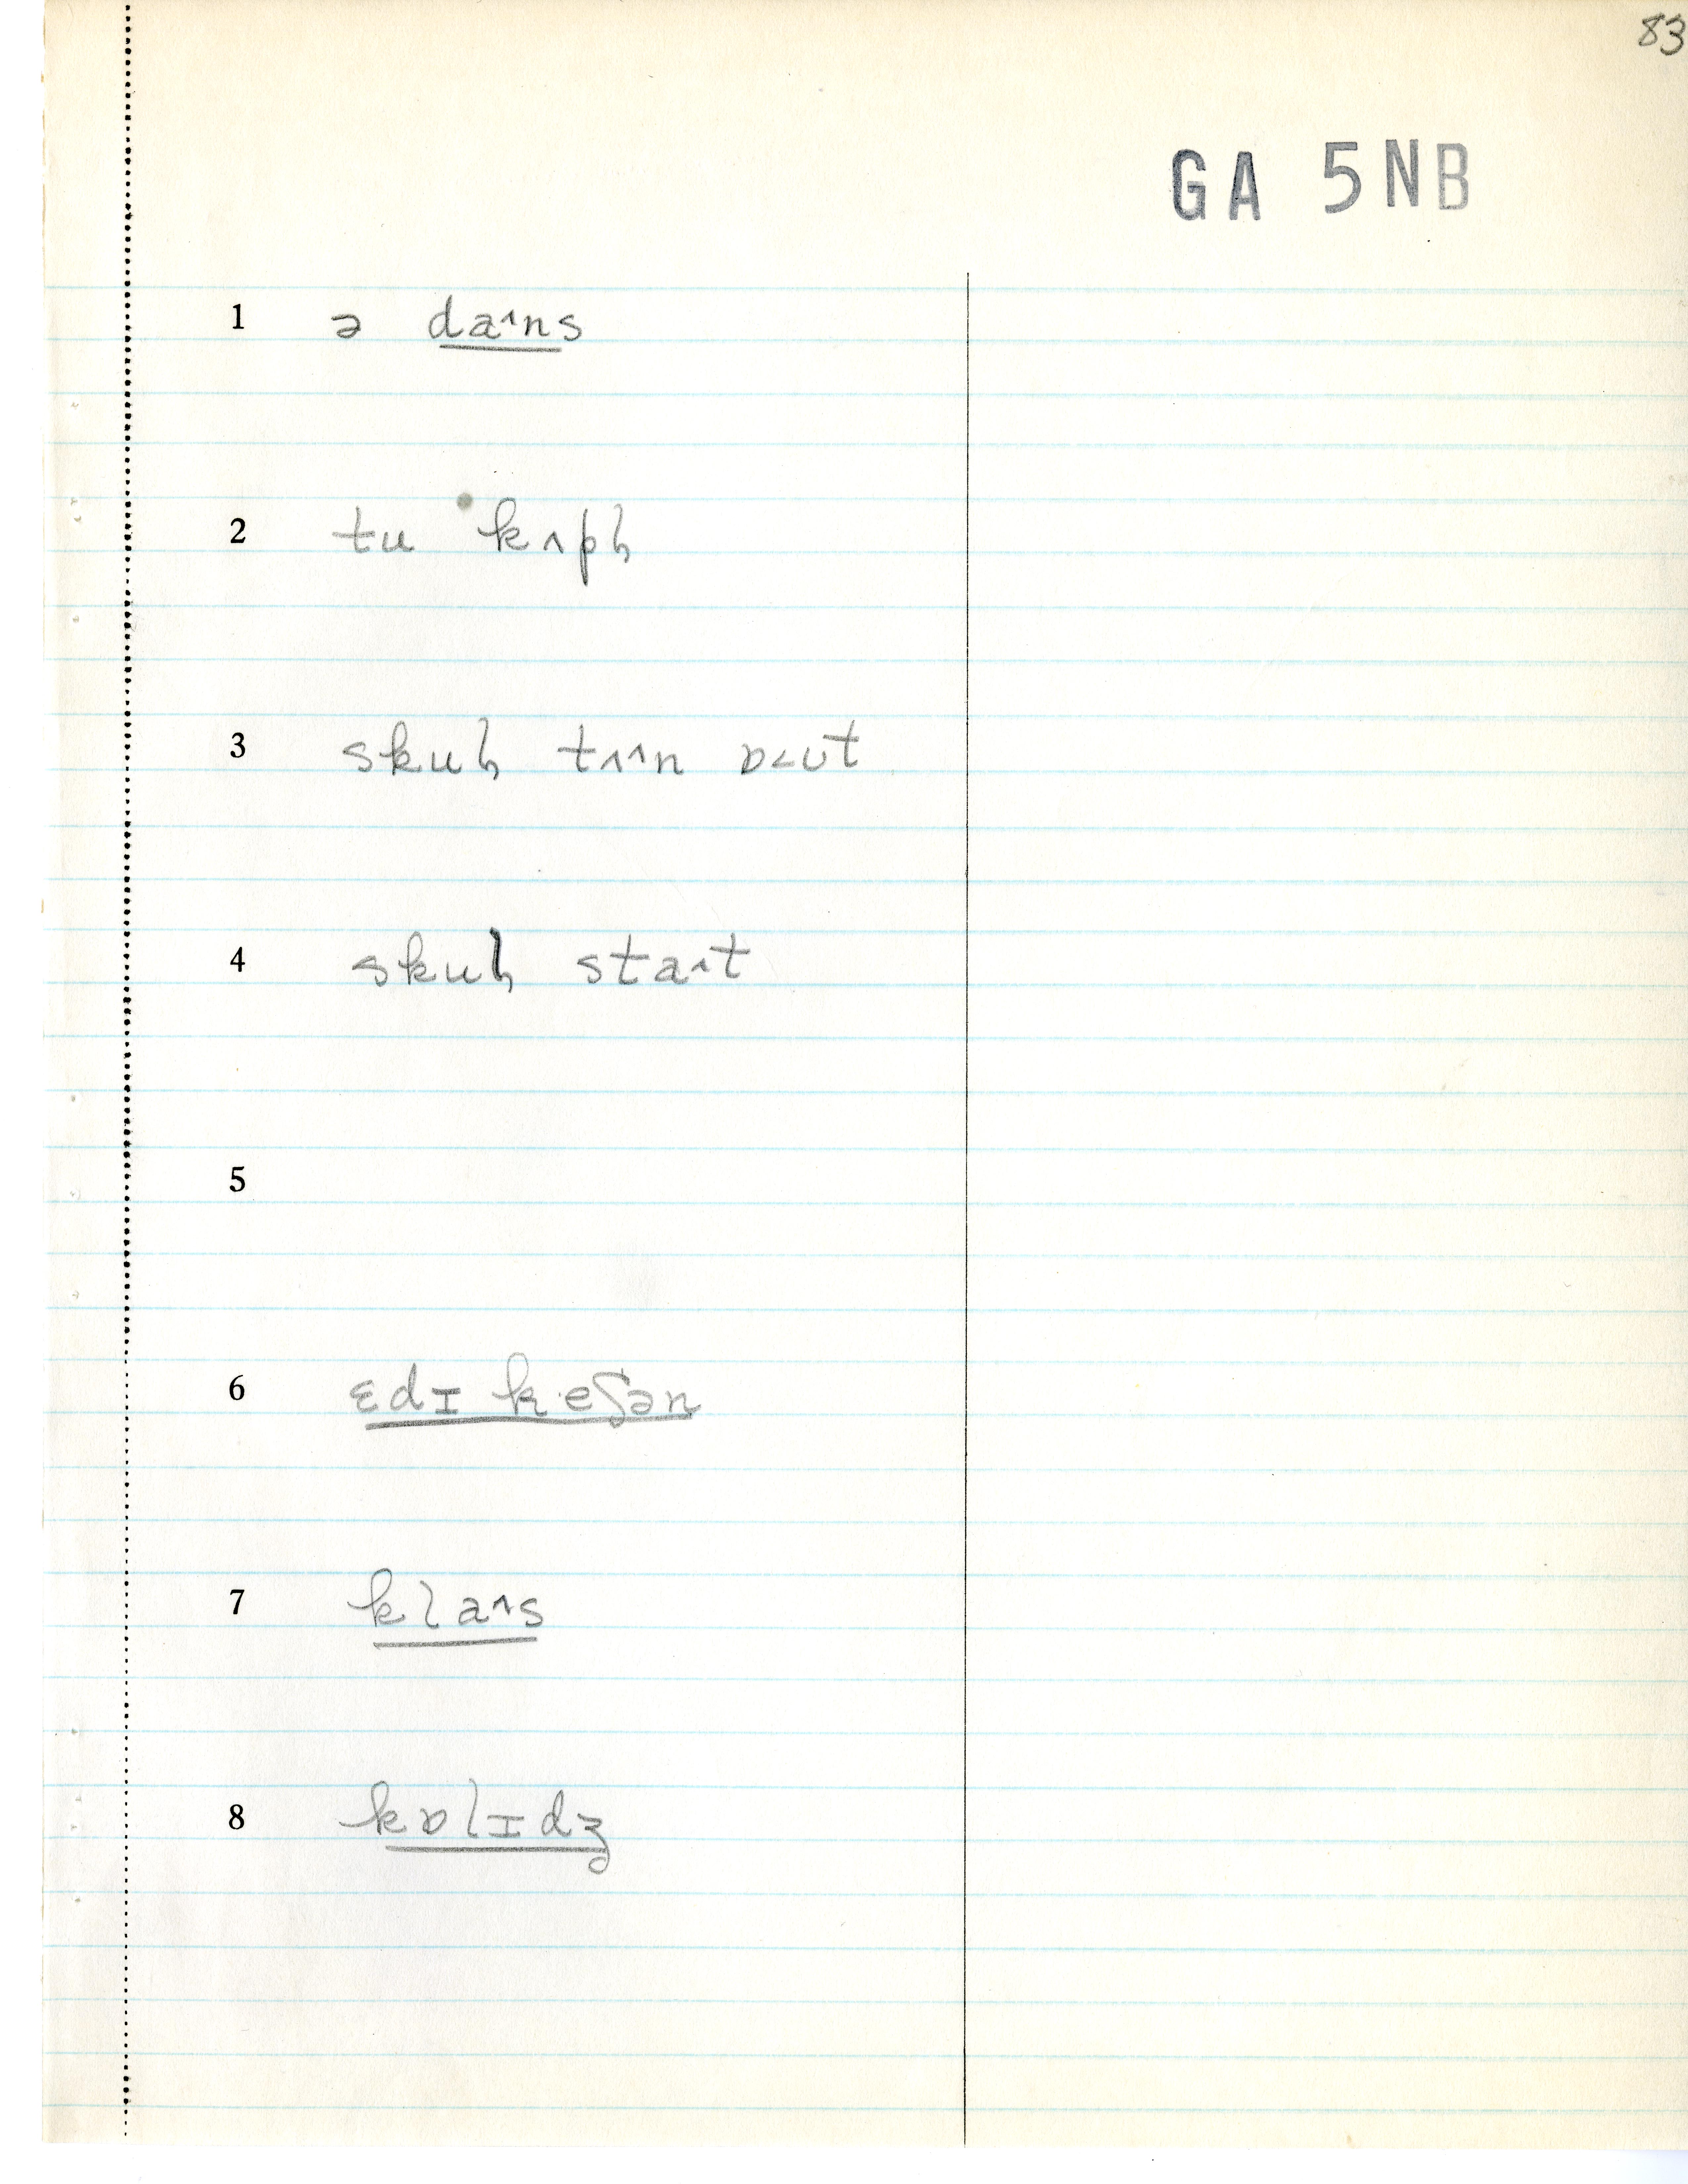 83
GA 5NB
1 ə da˄ns
2 tu kʌpl̩
3 skul̩ tʌ˄˄n ɒ˂ʊt
4 skul̩ sta˄t
5
6 ɛdɪkeʃən
7 kla˄s
8 kɒlɪdʒ